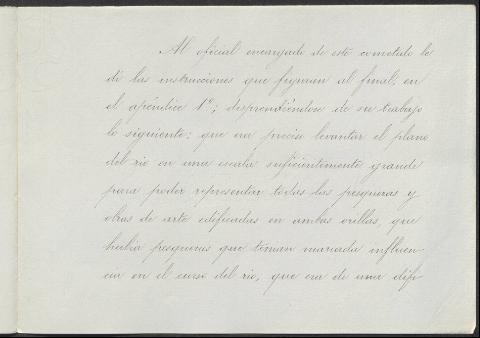 Al oficial encargado de este cometido le
dí las instrucciones que figuran al final, en
el apéndice 1º; desprendiéndose de su trabajo
lo siguiente: que era preciso levantar el plano
del rio en una escala suficientemente grande
para poder representar todas las pesqueras y
obras de arte edificadas en ambas orillas, que
habia pesqueras que tenian marcada influen
cia en el curso del rio, que era de una difi